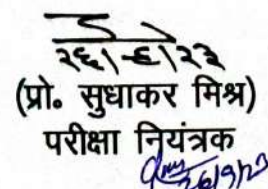 २६।९।२३
(प्रो० सुधाकर मिश्र)
परीक्षा नियंत्रक
26/9/23